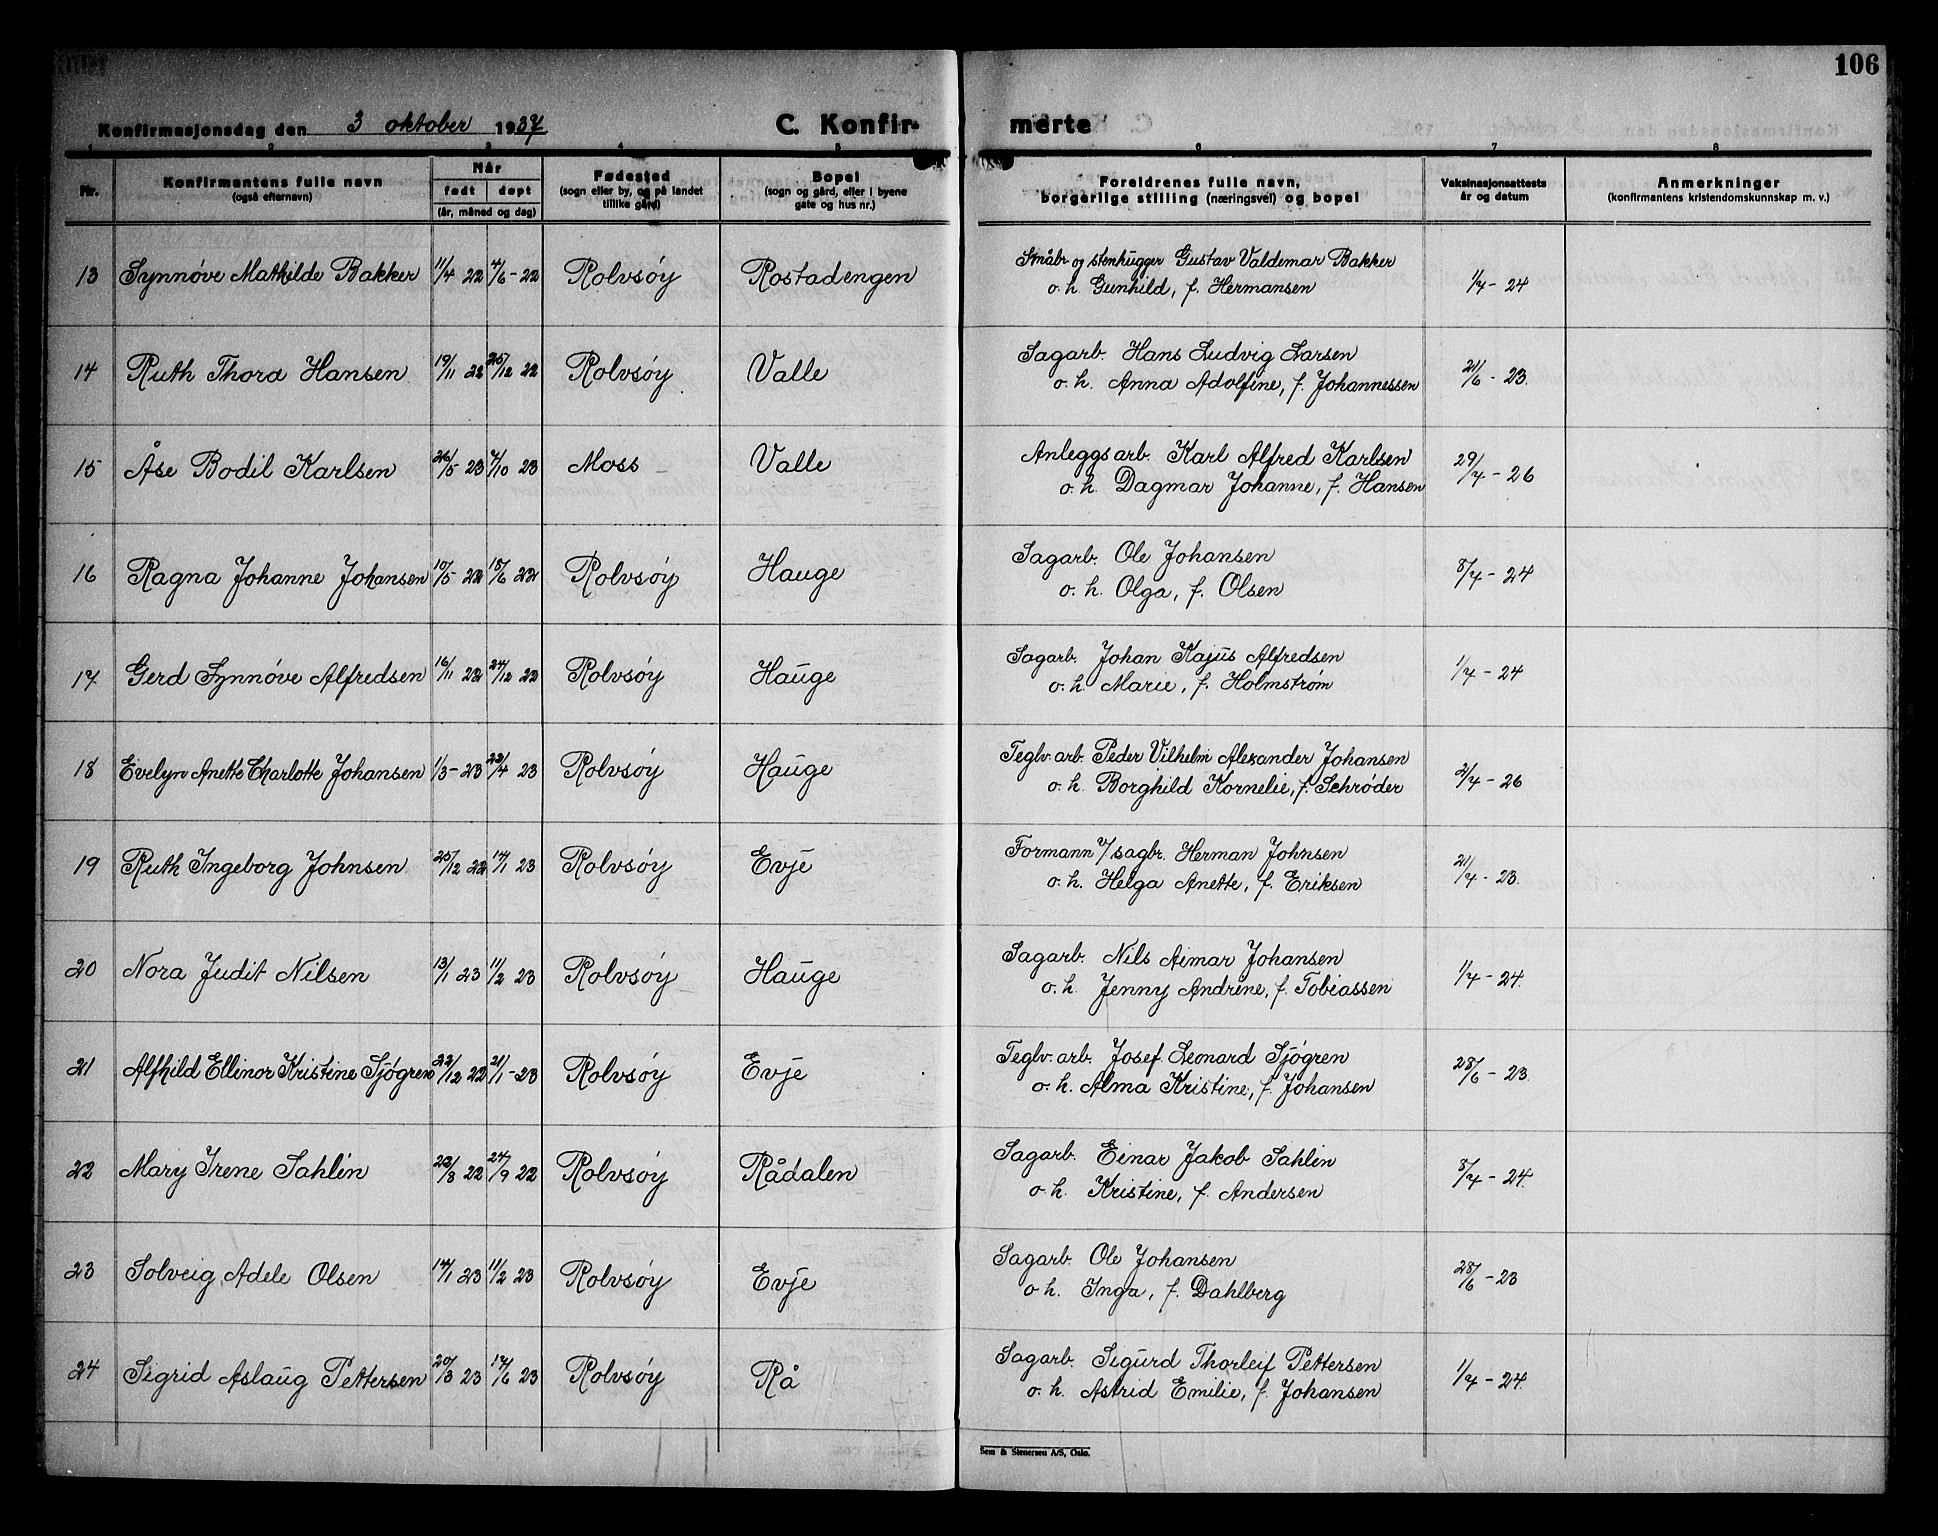 106
Konfirmasjonsdag den 3 oktober 1937 C. Konfir- merte
1 2 3 4 5 6 7 8
Nr. Konfirmantens fulle navn (også efternavn) Når født døpt (år, måned og dag) Fødested (sogn eller by, og på landet tillike gård) Bopel (sogn og gård, eller i byene gate og hus nr.) Foreldrenes fulle navn, borgerlige stilling (næringsvei) og bopel Vaksinasjonsattests år og datum Anmerkninger (konfirmantens kristendomskunnskap m. v.)
13 Synnøve Mathilde Bakker 11/4 22 4/6-22 Rolvsøy Rostadengen Småbr. og stenhugger Gustav Valdemar Bakker 1/7-24
o. h. Gunhild, f. Hermansen
14 Ruth Thora Hansen 19/11 22 25/12 22 Rolvsøy Valle Sagarb. Hans Ludvig Larsen 21/6-23.
o. h. Anna Adolfine, f. Johannessen
15 Åse Bodil Karlsen 26/5 23 7/10 23 Moss Valle Anleggsarb. Karl Alfred Karlsen 29/7-26
o. h. Dagmar Johanne, f. Hansen
16 Ragna Johanne Johansen 10/5 22 18/6 22 Rolvsøy Hauge Sagarb. Ole Johansen 8/7-24
o. h. Olga, f. Olsen
17 Gerd Synnøve Alfredsen 16/11 22 24/12 22 Rolvsøy Hauge Sagarb. Johan Kajus Alfredsen 1/7-24
o. h. Marie, f. Holmstrøm
18 Evelyn Anette Charlotte Johansen 1/3-23 22/4 23 Rolvsøy Hauge Teglv.arb. Peder Vilhelm Alexander Johansen 2/7-26
o. h. Borghild Kornelie, f. Schrøder
19 Ruth Ingeborg Johnsen 25/12 22 14/1 23 Rolvsøy Evje Formann v/sagbr. Herman Johnsen 21/7-23.
o. h. Helga Anette, f. Eriksen
20 Nora Judit Nilsen 13/1 23 11/2 23 Rolvsøy Hauge Sagarb. Nils Aimar Johansen 1/7-24.
o. h. Jenny Andrine, f. Tobiassen
21 Alfhild Ellinor Kristine Sjøgren 22/12 22 21/1-23 Rolvsøy Evje Teglv.arb. Josef Leonard Sjøgren 28/6-23.
o. h. Alma Kristine, f. Johansen
22 Mary Irene Sahlin 23/8 22 24/9 22 Rolvsøy Rådalen Sagarb. Einar Jakob Sahlin 8/7-24.
o. h. Kristine, f. Andersen
23 Solveig Adele Olsen 14/1 23 11/2 23 Rolvsøy Evje Sagarb. Ole Johansen 28/6-23
o h. Inga, f. Dahlberg
24 Sigrid Aslaug Pettersen 20/3 23 17/6 23 Rolvsøy Rå Sagarb. Sigurd Thorleif Pettersen 1/7-24.
o. h. Astrid Emilie, f. Johansen
Sem & Stenersen A/S, Oslo.